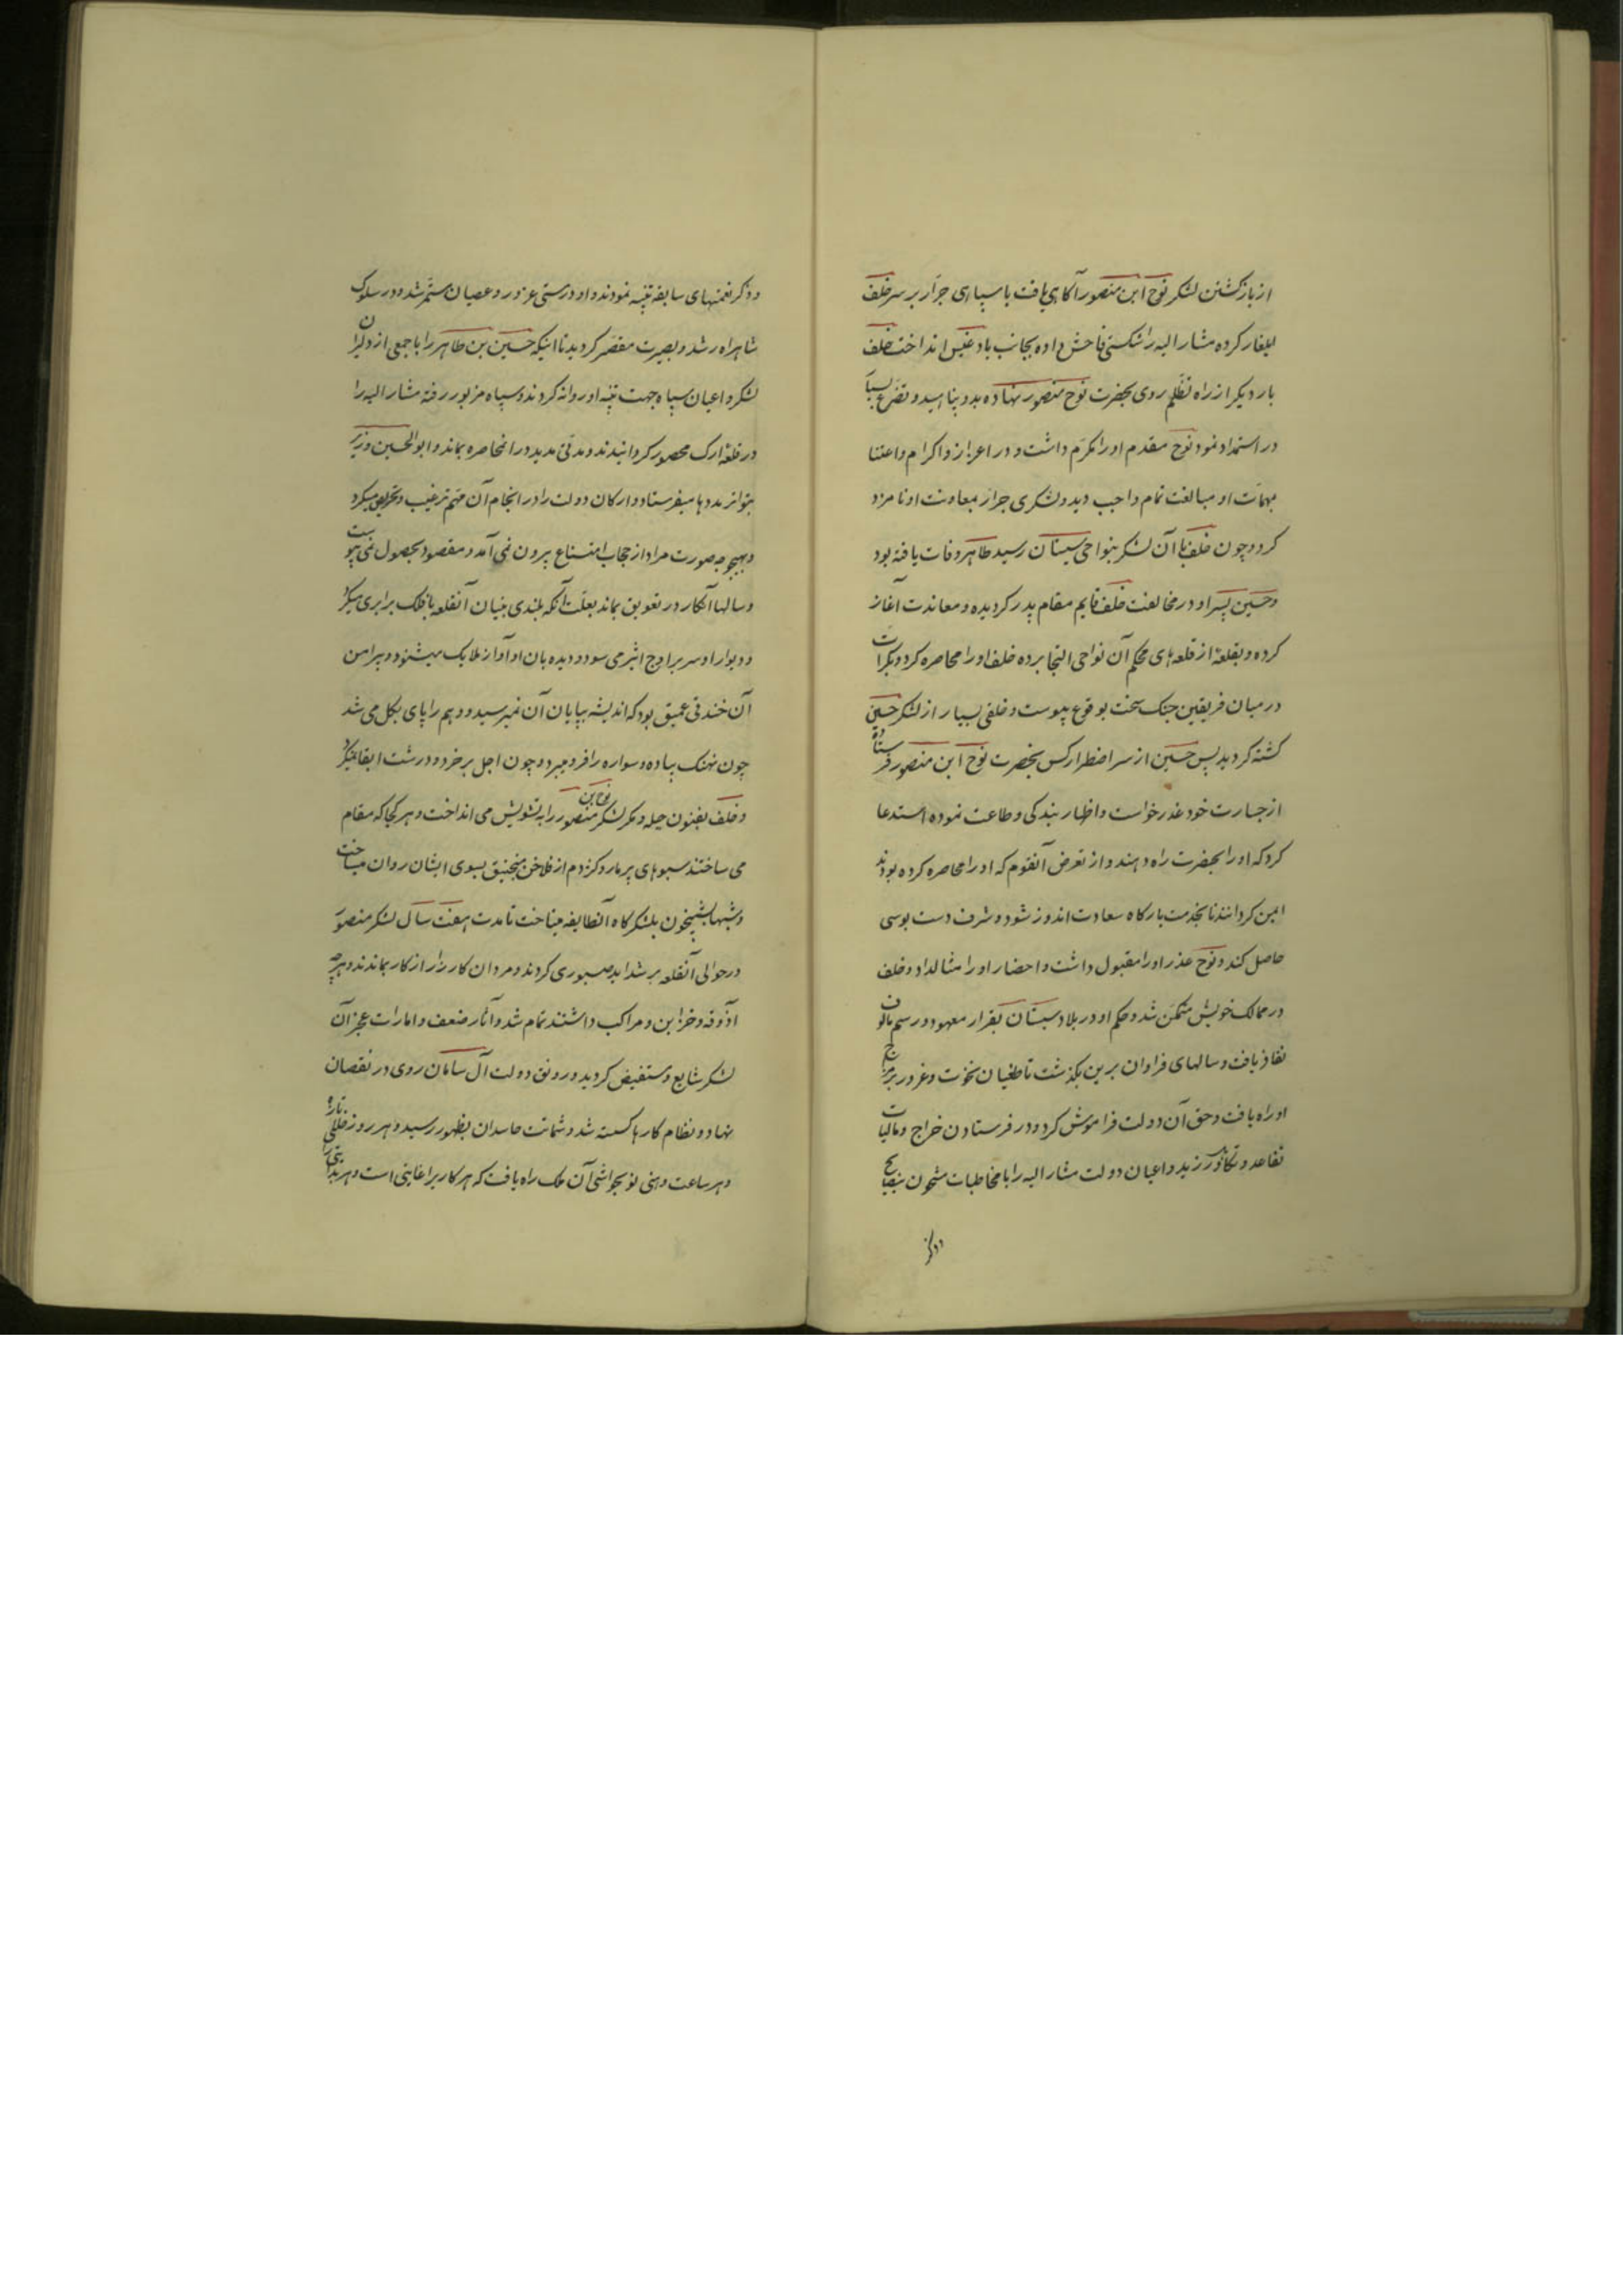 از بازگشتن لشکر نوح ابن منصور آگاهی یافت با سپاهی جرار بر سر خلف
ایلغار کرده مشار الیه را شکستی فاحش داده بجانب بادغیس انداخت خلف
بار دیگر از راه تظلم روی بحضرت نوح منصور نهاده بدو پناهید و تضرع بسیار
در استمداد نمود نوح مقدم او را مکرم داشت و در اعزاز و اکرام و اعتنا
بمهمات او مبالغت تمام واجب دید و لشکری جرار بمعاونت او نامزد
کرد و چون خلف با آن لشکر بنواحی سیستان رسید طاهر وفات یافته بود
و حسین پسر او در مخالفت خلف قایم مقام پدر کردیده و معاندت آغاز
کرده و بقلعهٔ از قلعه‌های محکم آن نواحی التجا برده خلف او را محاصره کرد و بکرات
در میان فریقین جنک سخت بوقوع پیوست و خلقی بسیار از لشکر حسین
کشته کردید پس حسین از سر اضطرار کس بحضرت نوح ابن منصور فرستاده
از جسارت خود عذر خواست و اظهار بندکی و طاعت نموده استدعا
کرد که او را بحضرت راه دهند و از تعرض آنقوم که او را محاصره کرده بودند
ایمن کردانند تا بخدمت بارکاه سعادت اندوز شود و شرف دست بوسی
حاصل کند و نوح عذر او را مقبول داشت و احضار او را مثال داد و خلف
در ممالک خویش متمکن شد و حکم او در بلاد سیستان بقرار معهود و رسم مالوف
نفاذ یافت و سالهای فراوان برین بکذشت تا طغیان نخوت و غرور بر مزاج
او راه یافت و حق آن دولت فراموش کرد و در فرستادن خراج و مالیات
تقاعد و تکاثر ورزید و اعیان دولت مشار الیه را با مخاطبات مشحون بنصایح
و ذکر
و ذکر نعمتهای سابقه تنبیه نمودند و او در مستی غرور و عصیان مستمر شد و در سلوک
شاهراه رشد و بصیرت مقصر کردید تا اینکه حسین بن طاهر را با جمعی از دلیران
لشکر و اعیان سپاه جهت تنبیه او روانه کردند و سپاه مزبور رفته مشار الیه را
در قلعهٔ ارک محصور کردانیدند و مدتی مدید در انمحاصره بماند و ابوالحسین وزیر
بتواتر مددها میفرستاد و ارکان دولت را در انجام آن مهم ترغیب و تحریص میکرد
و بهیچوجه صورت مراد از حجاب امتناع بیرون نمی آمد و مقصود بحصول نمی پیوست
و سالها آنکار در تعویق بماند بعلت آنکه بلندی بنیان آنقلعه با فلک برابری میکرد
و دیوار او سر بر اوج اثیر می سود و دیده بان او آواز ملایک میشنود و پیرامن
آن خندقی عمیق بود که اندیشه بپایان آن نمیرسید و وهم را پای بکل می شد
چون نهنک پیاده و سواره را فرو میبرد و چون اجل بر خرد و درشت ابقا نمیکرد
و خلف بفنون حیله و مکر لشکر نوح بن منصور را به تشویش می انداخت و هر کجا که مقام
می ساختند سبوهای پر مار و کژدم از فلاخن منجنیق بسوی ایشان روان میساخت
و شبها شبیخون بلشکر کاه آنطایفه میتاخت تا مدت هفت سال لشکر منصور
در حوالی آنقلعه بر شداید صبوری کردند و مردان کارزار از کار بماندند و هر چه
اذوقه و خزاین و مراکب داشتند تمام شد و آثار ضعف و امارات عجز آن
لشکر شایع و مستفیض کردید و رونق دولت آل سامان روی در نقصان
نهاد و نظام کارها کسسته شد و شماتت حاسدان بظهور رسید و هر روز خللی تازه
و هر ساعت وهنی نو بحواشی آن ملک راه یافت که هر کار را غایتی است و هر بدایتی را